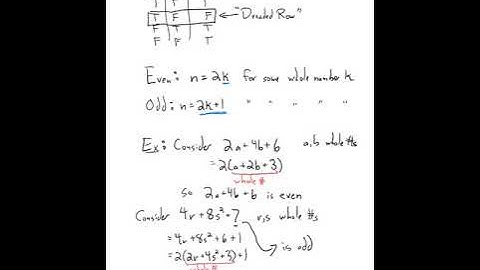 T T T
T F F ← "Dreaded Row"
F T T
F F T
Even: n=2k for some whole number k
Odd: n=2k+1 " " " " "
Ex: Consider 2a+4b+6 a,b whole #s
=2(a+2b+3)
whole #
so 2a+4b+6 is even
Consider 4r+8s²+7 r,s whole #s
=4r+8s²+6+1 is odd
=2(2r+4s²+3)+1
whole #